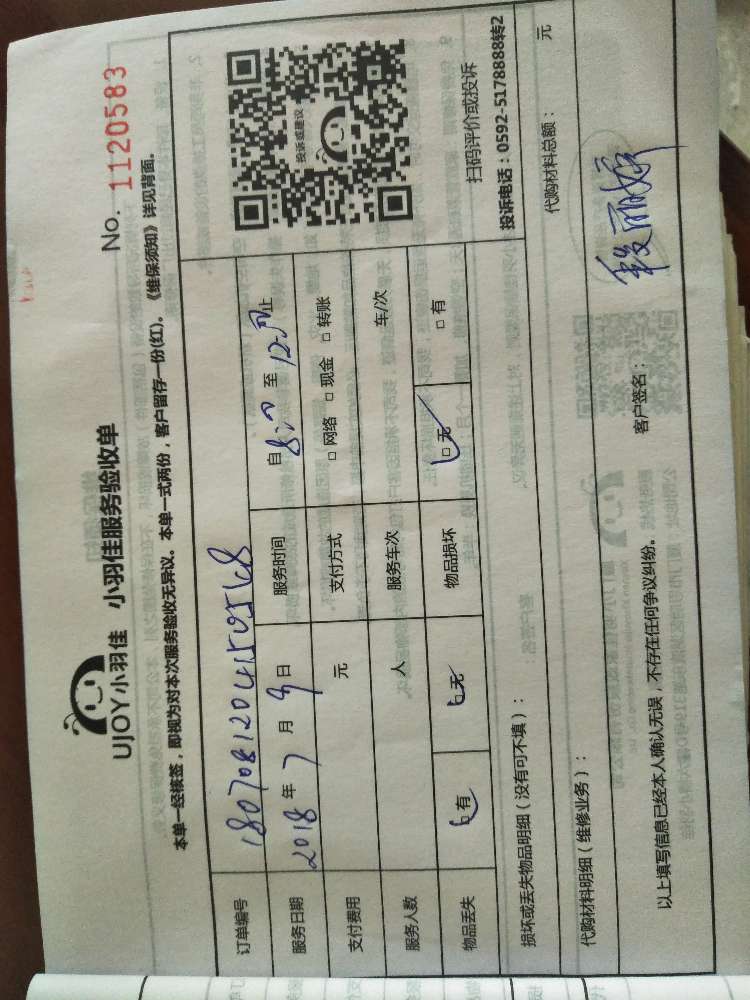 UJOY小羽佳 小羽佳服务验收单
No. 1120583
本单一经核签，即视为对本次服务验收无异议。本单一式两份，客户留存一份(红)。《维保须知》详见背面。
订单编号
服务日期 2018 年 7 月 9 日 服务时间 自 8:00 至 12:00 止
支付费用 元 支付方式 □ 网络 □ 现金 □ 转账
服务人数 人 服务车次 车/次
物品丢失 □ 有 □ 无 物品损坏 □ 无 □ 有
投诉或建议
扫码评价或投诉
投诉电话：0592-5178888转2
损坏或丢失物品明细（没有可不填）：
代购材料明细（维修业务）： 代购材料总额： 元
以上填写信息已经本人确认无误，不存在任何争议纠纷。 客户签名：